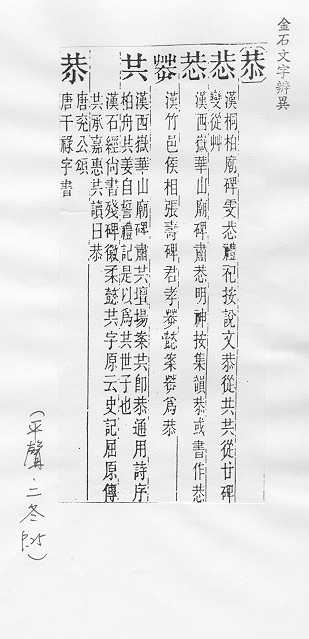 金石文字辨異
恭
㳟漢桐柏廟碑雯㳟禮祀按說文恭從共共從廿碑
變從艸
漢西嶽華山廟碑肅㳟明神按集韻恭或書作㳟
漢竹邑侯相張壽碑君孝懿案為恭
共漢西嶽華山廟碑肅共壇場案共即恭通用詩序
柏舟共姜自誓禮記是以為共世子也
漢石經尚書殘碑徽柔懿共字原云史記屈原傳
共承嘉惠共讀曰恭
恭唐兖公頌
唐干祿字書
(平聲·二冬